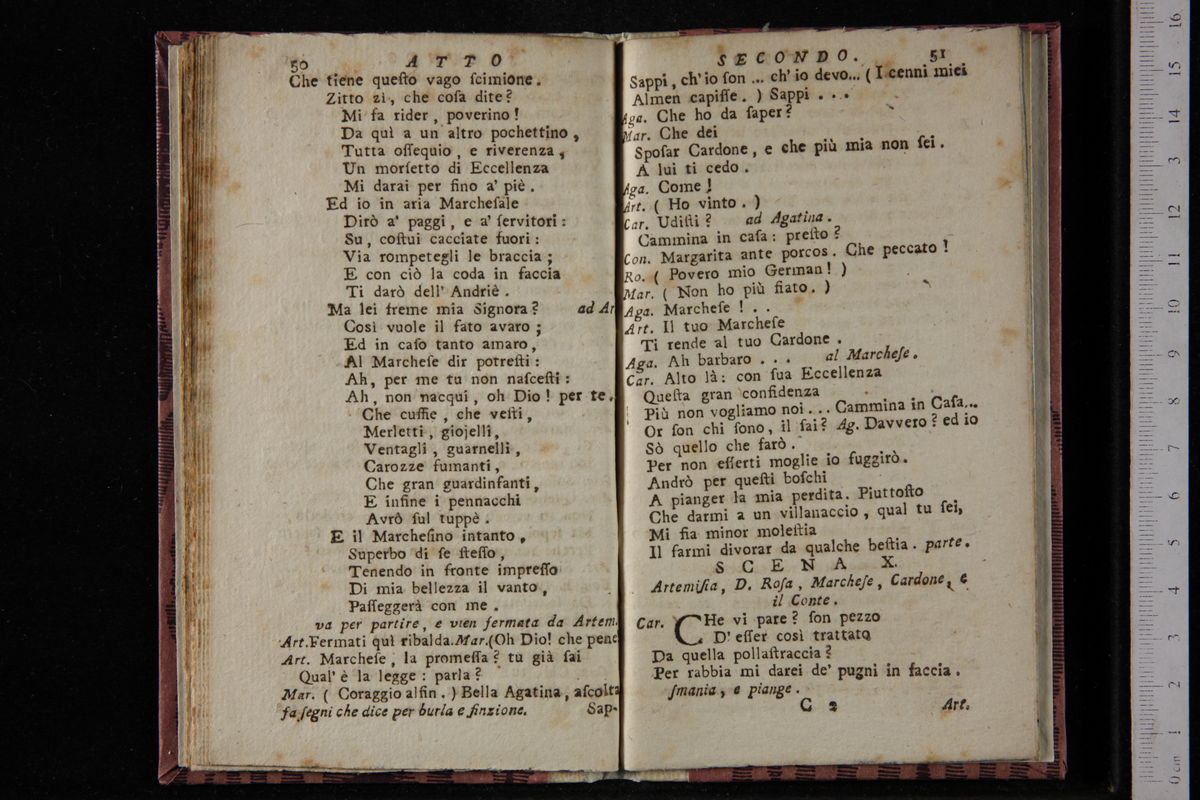 50 ATTO
Che tiene queſto vago ſcimione.
Zitto zì, che coſa dite?
Mi fa rider, poverino!
Da quì a un altro pochettino,
Tutta oſſequio, e riverenza,
Un morſetto di Eccellenza
Mi darai per fino a' piè.
Ed io in aria Marcheſale
Dirò a' paggi, e a' ſervitori:
Su, coſtui cacciate fuori:
Via rompetegli le braccia;
E con ciò la coda in faccia
Ti darò dell' Andriè.
Ma lei freme mia Signora? ad Ar
Così vuole il fato avaro;
Ed in caſo tanto amaro,
Al Marcheſe dir potreſti:
Ah, per me tu non naſceſti:
Ah, non nacqui, oh Dio! per te.
Che cuffie, che veſti,
Merletti, giojelli,
Ventagli, guarnelli,
Carozze fumanti,
Che gran guardinfanti,
E infine i pennacchi
Avrò ſul tuppè.
E il Marcheſino intanto,
Superbo di ſe ſteſſo,
Tenendo in fronte impreſſo
Di mia bellezza il vanto,
Paſſeggerà con me.
va per partire, e vien fermata da Artem.
Art. Fermati quì ribalda. Mar. (Oh Dio! che pene
Art. Marcheſe, la promeſſa? tu già ſai
Qual' è la legge: parla?
Mar. (Coraggio alfin.) Bella Agatina, aſcolta
fa ſegni che dice per burla e finzione. Sap-
SECONDO. 51
Sappi, ch' io ſon ... ch' io devo... (I cenni miei
Almen capiſſe.) Sappi ...
Aga. Che ho da ſaper?
Mar. Che dei
Spoſar Cardone, e che più mia non ſei.
A lui ti cedo.
Aga. Come!
Art. (Ho vinto.)
Car. Udiſti? ad Agatina.
Cammina in caſa: preſto?
Con. Margarita ante porcos. Che peccato!
Ro. (Povero mio German!)
Mar. (Non ho più fiato.)
Aga. Marcheſe! ..
Art. Il tuo Marcheſe
Ti rende al tuo Cardone.
Aga. Ah barbaro ... al Marcheſe.
Car. Alto là: con ſua Eccellenza
Queſta gran confidenza
Più non vogliamo noi... Cammina in Caſa...
Or ſon chi ſono, il ſai? Ag. Davvero? ed io
Sò quello che farò.
Per non eſſerti moglie io fuggirò.
Andrò per queſti boſchi
A pianger la mia perdita. Piuttoſto
Che darmi a un villanaccio, qual tu ſei,
Mi fia minor moleſtia
Il farmi divorar da qualche beſtia. parte.
SCENA X.
Artemiſia, D. Roſa, Marcheſe, Cardone, e
il Conte.
Car. CHe vi pare? ſon pezzo
D' eſſer così trattato
Da quella pollaſtraccia?
Per rabbia mi darei de' pugni in faccia.
ſmania, e piange.
C 2 Art.
0 cm 1 2 3 4 5 6 7 8 9 10 11 12 3 14 15 16